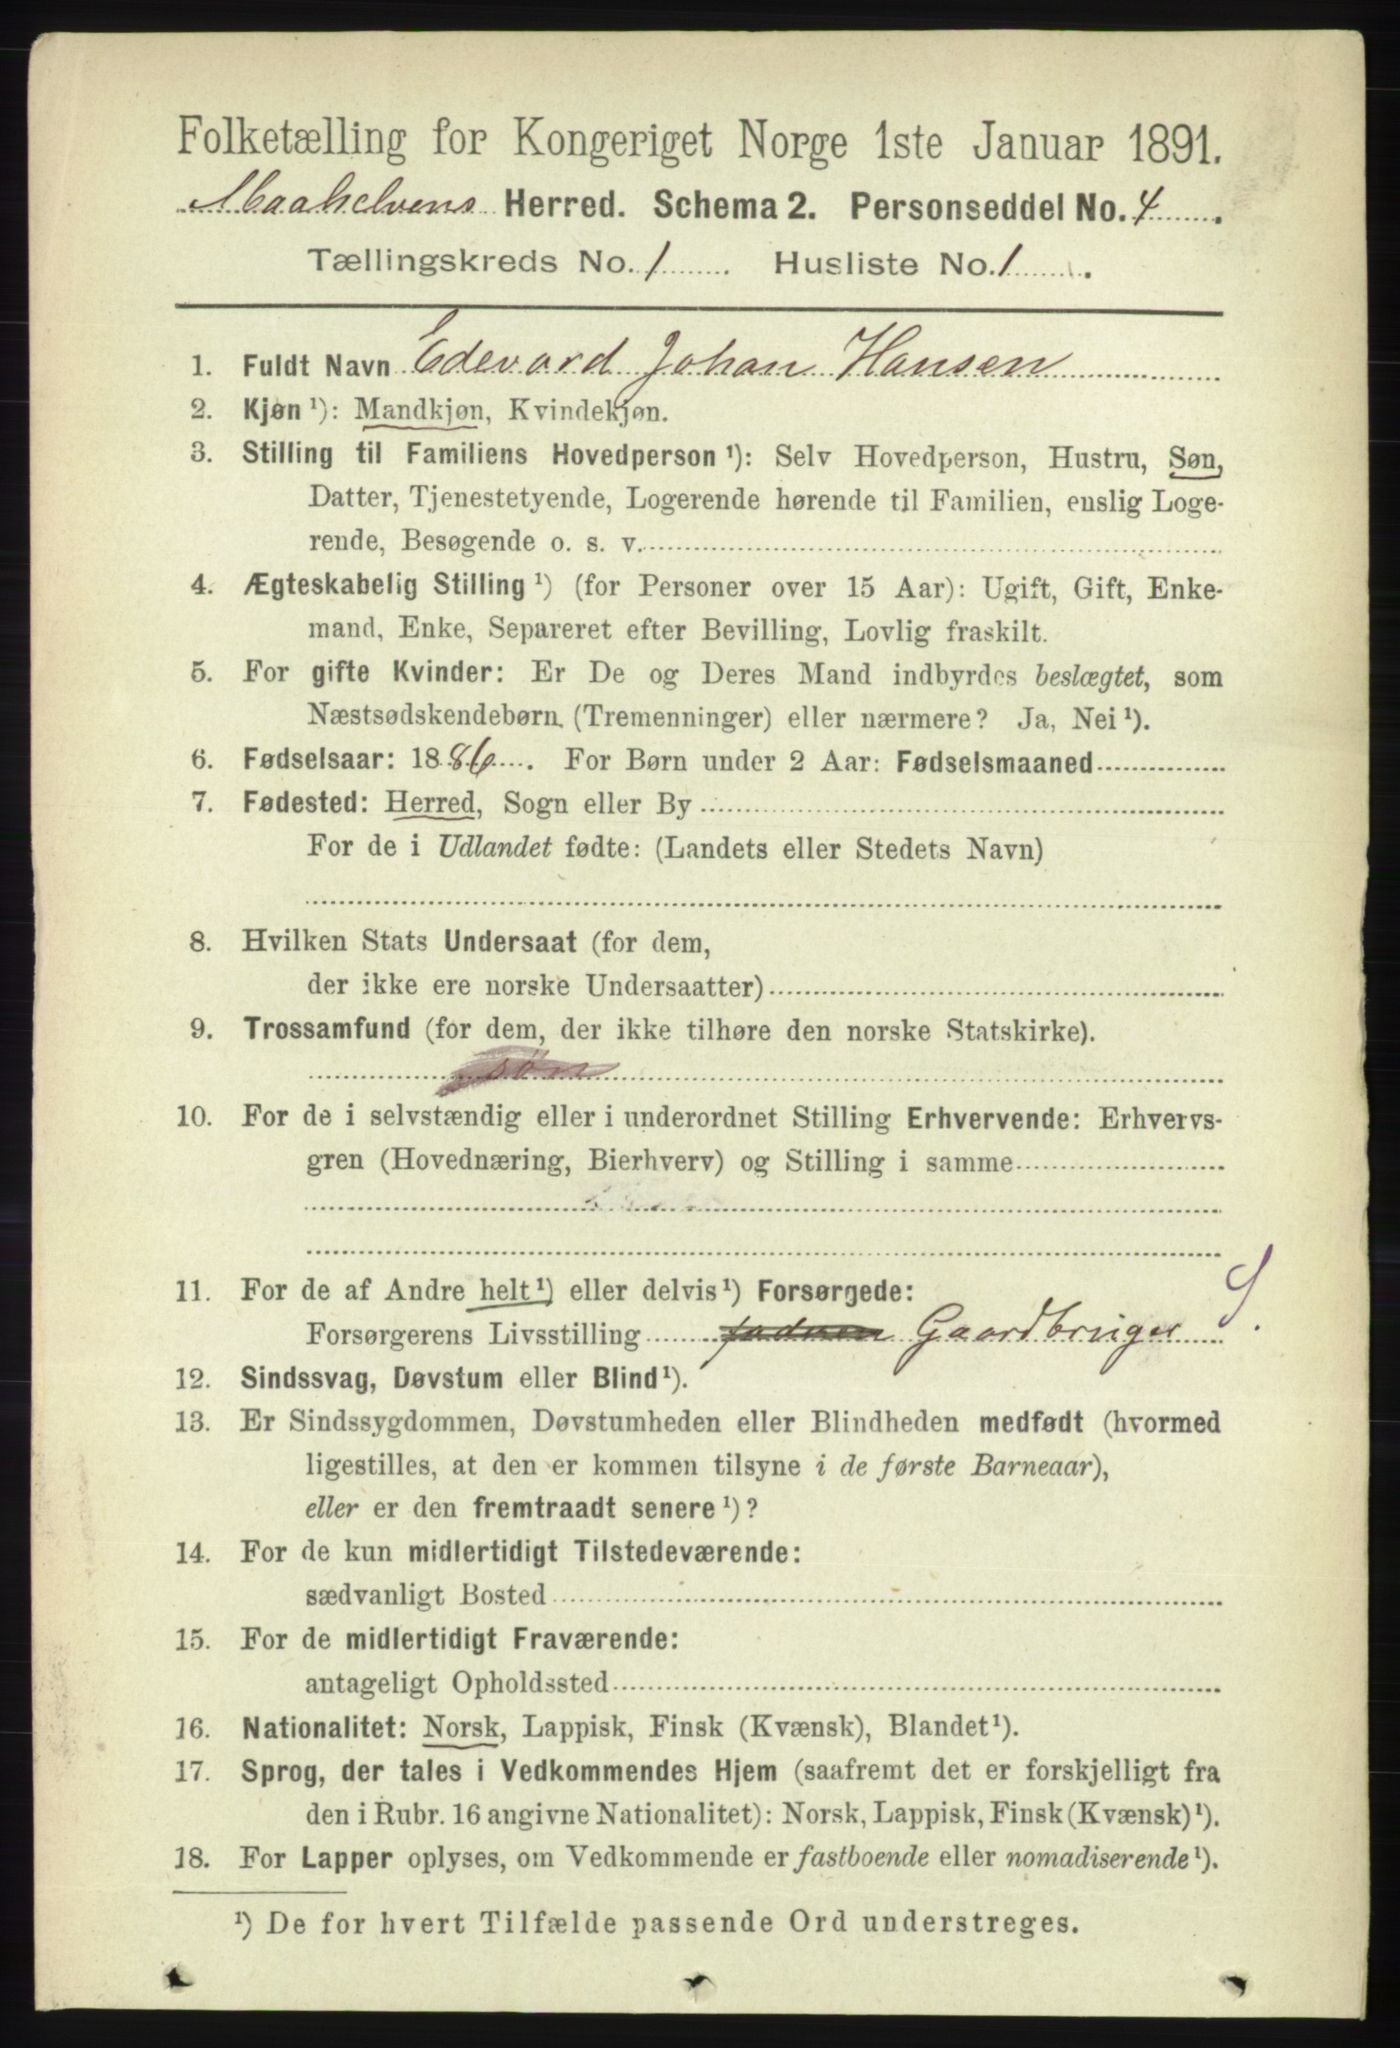 Folketælling for Kongeriget Norge 1ste Januar 1891.
Maalselvens Herred. Schema 2. Personseddel No. 4.
Tællingskreds No. 1. Husliste No. 1.
1. Fuldt Navn Edevard Johan Hansen
2. Kjøn ¹): Mandkjøn, Kvindekjøn.
3. Stilling til Familiens Hovedperson ¹): Selv Hovedperson, Hustru, Søn,
Datter, Tjenestetyende, Logerende hørende til Familien, enslig Loge-
rende, Besøgende o. s. v.
4. Ægteskabelig Stilling ¹) (for Personer over 15 Aar): Ugift, Gift, Enke-
mand, Enke, Separeret efter Bevilling, Lovlig fraskilt.
5. For gifte Kvinder: Er De og Deres Mand indbyrdes beslægtet, som
Næstsødskendebørn (Tremenninger) eller nærmere? Ja, Nei ¹).
6. Fødselsaar: 1886. For Børn under 2 Aar: Fødselsmaaned
7. Fødested: Herred, Sogn eller By
For de i Udlandet fødte: (Landets eller Stedets Navn)
8. Hvilken Stats Undersaat (for dem,
der ikke ere norske Undersaatter)
9. Trossamfund (for dem, der ikke tilhøre den norske Statskirke).
søn
10. For de i selvstændig eller i underordnet Stilling Erhvervende: Erhvervs-
gren (Hovednæring, Bierhverv) og Stilling i samme
11. For de af Andre helt ¹) eller delvis ¹) Forsørgede:
Forsørgerens Livsstilling Gaardbruger
12. Sindssvag, Døvstum eller Blind ¹).
13. Er Sindssygdommen, Døvstumheden eller Blindheden medfødt (hvormed
ligestilles, at den er kommen tilsyne i de første Barneaar),
eller er den fremtraadt senere ¹)?
14. For de kun midlertidigt Tilstedeværende:
sædvanligt Bosted
15. For de midlertidigt Fraværende:
antageligt Opholdssted
16. Nationalitet: Norsk, Lappisk, Finsk (Kvænsk), Blandet ¹).
17. Sprog, der tales i Vedkommendes Hjem (saafremt det er forskjelligt fra
den i Rubr. 16 angivne Nationalitet): Norsk, Lappisk, Finsk (Kvænsk) ¹).
18. For Lapper oplyses, om Vedkommende er fastboende eller nomadiserende ¹).
¹) De for hvert Tilfælde passende Ord understreges.